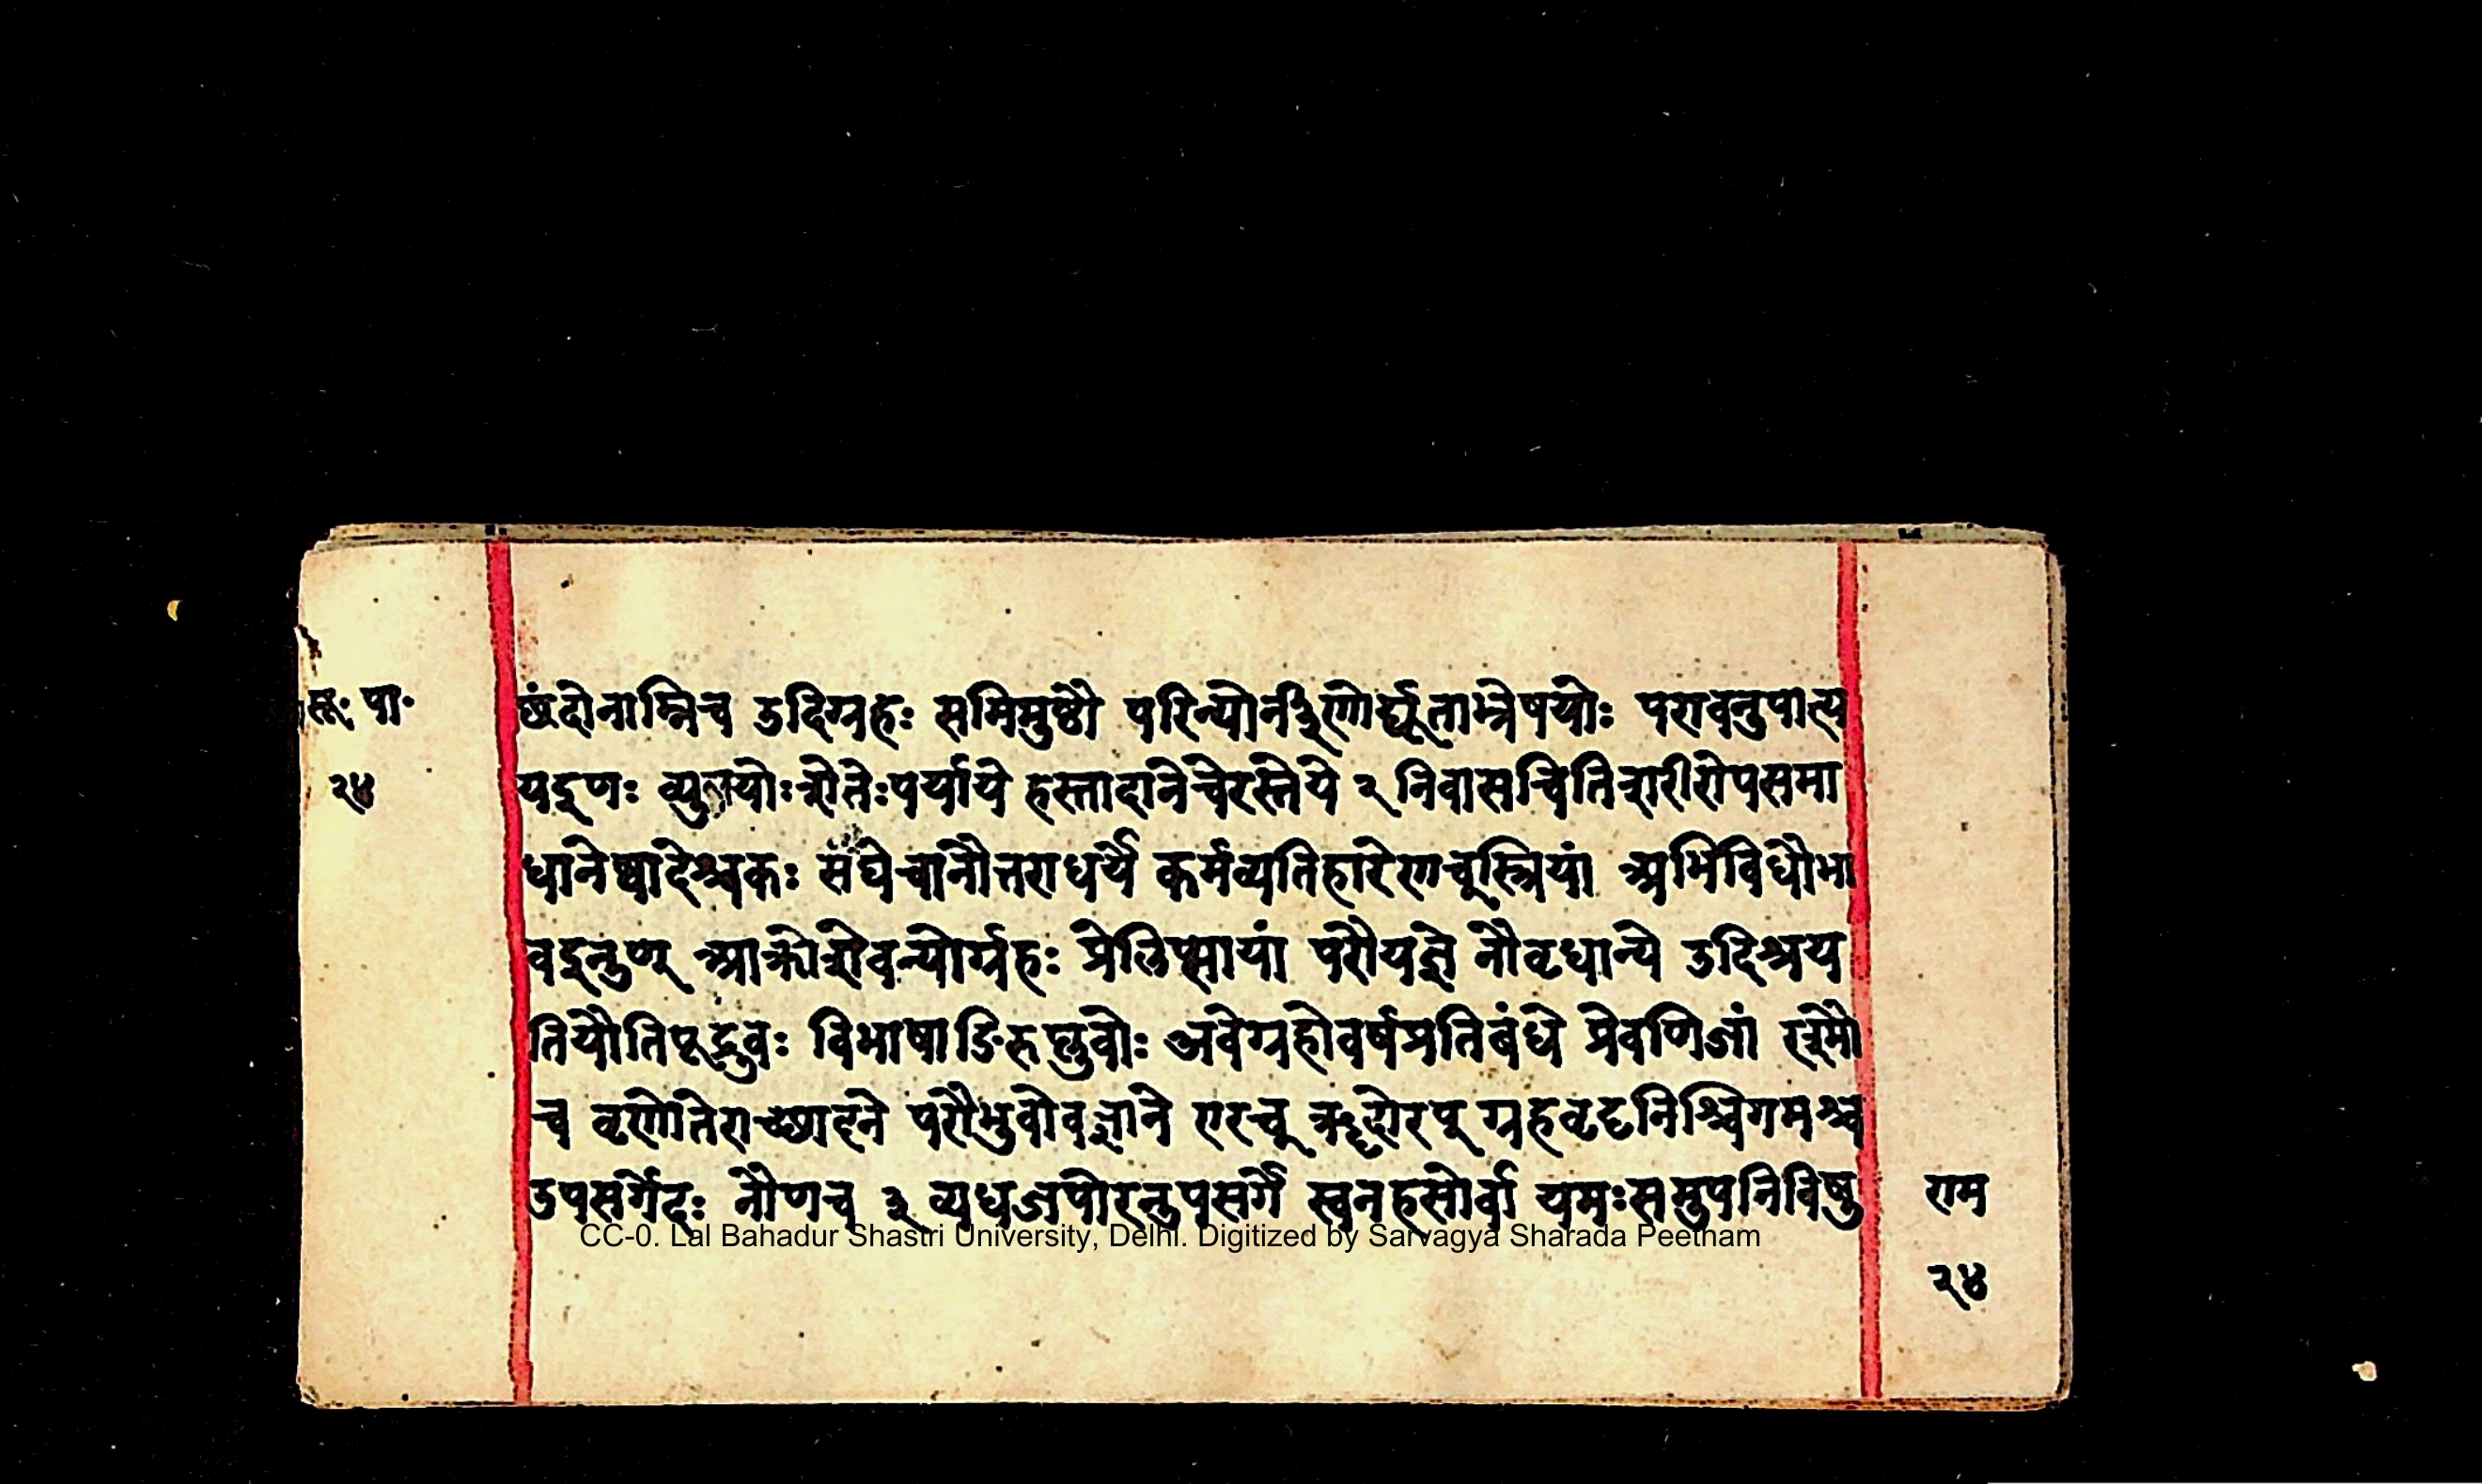 सू. पा.
२४
छंदोनाम्निच उदिग्रहः समिमुष्टौ परिन्योर्नीणोर्द्यूताभ्रेषयोः परावनुपात्य
यइणः व्युपयोःशेतेःपर्याये हस्तादानेचेरस्तेये २ निवासचितिशरीरोपसमा
धानेष्वादेश्चकः संघेचानौत्तराधर्ये कर्मव्यतिहारेणच्स्त्रियां अभिविधौभा
वइनुण् आक्रोशेवन्योर्ग्रहः प्रेलिप्सायां परौयज्ञे नौवृधान्ये उदिश्रय
तियौतिपूद्रुवः विभाषाङिरुप्लुवोः अवेग्रहोवर्षप्रतिबंधे प्रेवणिजां रश्मौ
च वृणोतेराच्छादने परौभुवोवज्ञाने एरच् ॠदोरप् ग्रहवृदृनिश्चिगमश्च
उपसर्गेदः नौणच ३ व्यधजपोरनुपसर्गे स्वनहसोर्वा यमःसमुपनिविषु
राम
२४
CC-0. Lal Bahadur Shastri University, Delhi. Digitized by Sarvagya Sharada Peetham